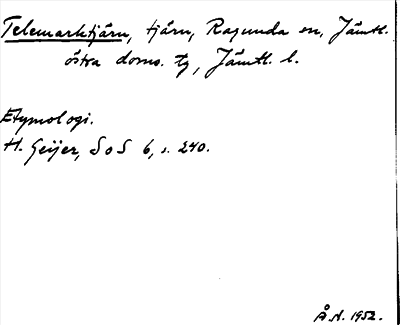 Telemarktjärn, tjärn, Ragunda sn, Jämtl.
östra doms. tg, Jämtl. l.
Etymologi.
H. Geijer, S o S 6, s. 240.
Å.N. 1952.